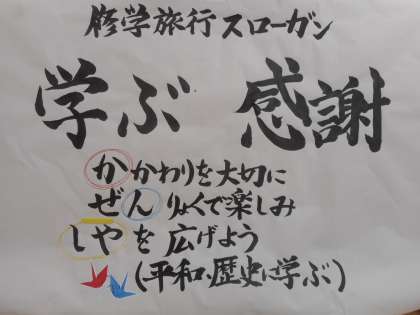 修学旅行スローガン
学ぶ 感謝
かかわりを大切に
ぜんりょくで楽しみ
しやを広げよう
(平和、歴史に学ぶ)